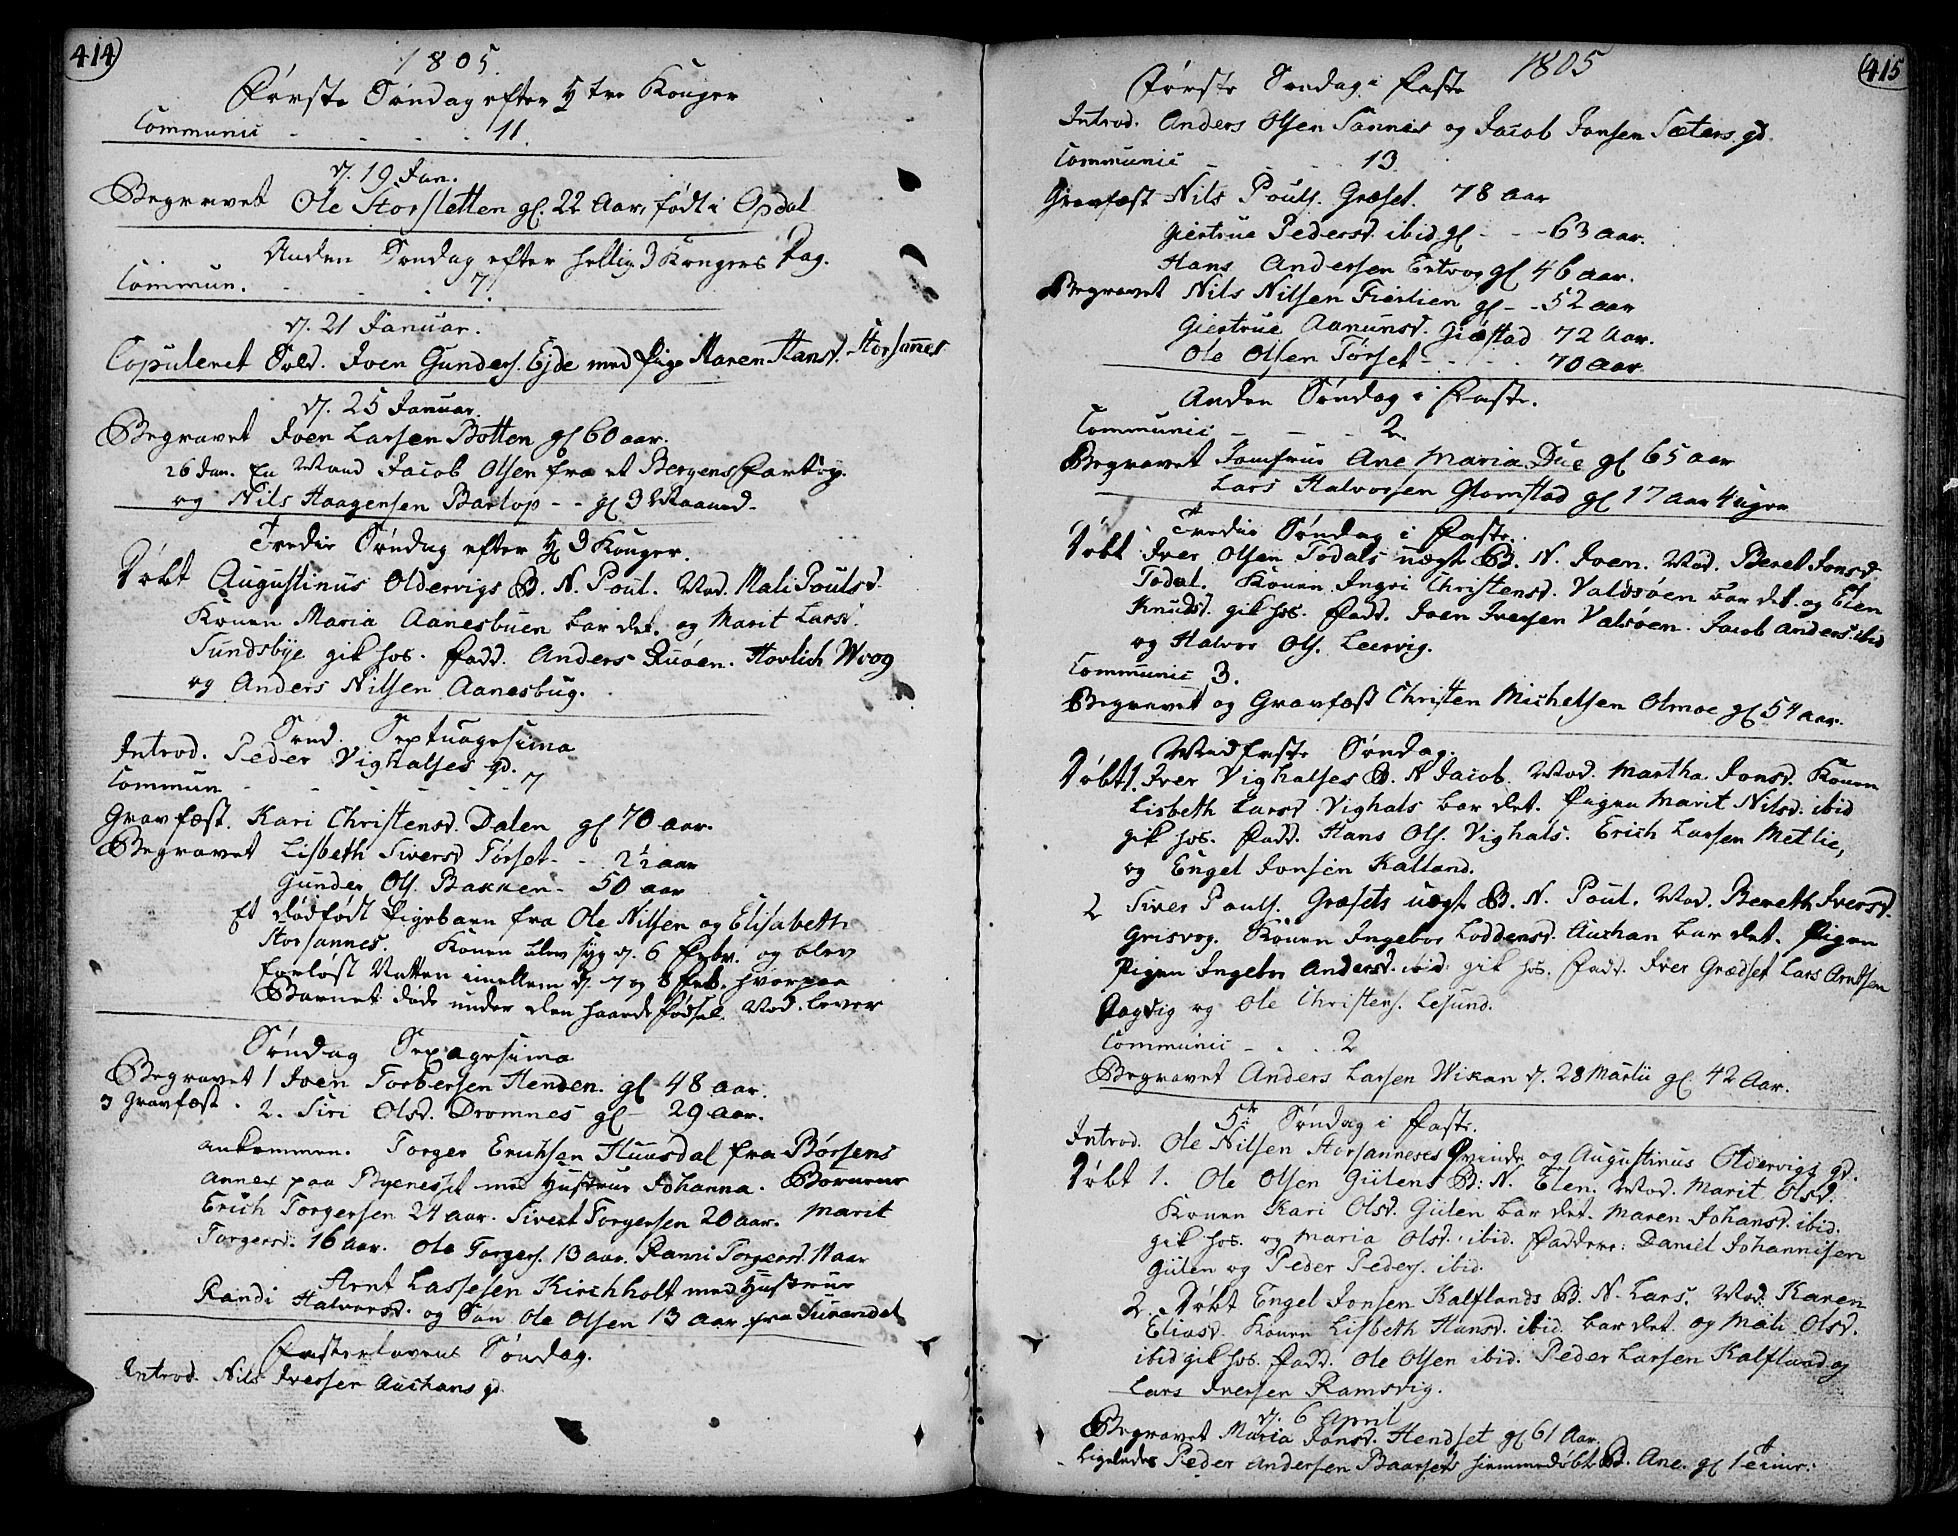 414
1805.
Første Søndag efter H. tre Konger
Communic - - - - 11.
d. 19 Jan.
Begravet Ole Storsletten gl. 22 Aar, født i Opdal
Anden Søndag efter hellig 3 Kongers Dag.
Commun. - - - 7.
d. 21 Januar.
Copuleret Sold. Joen Gunders. Ejde med Pige Maren Hansd. Storsannes
d. 25 Januar.
Begravet Joen Larsen Botten gl 60 aar.
26 Jan. En Mand Jacob Olsen fra et Bergens Fartøy.
og Nils Haagensen Bartop - - gl 3 Maaned.
Tredie Søndag efter H 3 Konger.
Døbt Augustinus Oldervigs B. N. Poul. Mod. Mali Poulsd.
Konen Maria Aanesbuen bar det. og Marit Larsd.
Sundsbye gik hos. Fadd. Anders Ruøen. Hovlich Woog
og Anders Nilsen Aanesbug.
Sønd. Septuagesima
Introd. Peder Vighalses qd.
Commun - - - - - 7
Gravfæst. Kari Christensd. Dalen gl 70 aar.
Begravet Lisbeth Siversd Tørset - - 2½ aar
Gunder Ols. Bakken - 50 aar
Et dødfødt Pigebarn fra Ole Nilsen og Elisabeth
Storsannes. Konen blev syg d. 6 Febr. og blev
forløst Natten imellem d. 7 og 8 Feb. hvorpaa
Barnet døde under den haarde fødsel. Mod. lever
Søndag Sexagesima
Begravet 1 Joen Torbersen Henden. gl 48 aar.
og Gravfæst. 2. Siri Olsd. Dromnes gl - 29 aar.
ankommen. Torger Erichsen Huusdal fra Børsens
annex paa Byenesset med Hustrue Johanna. Børnene
Erich Torgersen 24 aar. Sivert Torgersen 20 aar. Marit
Torgersd. 16 aar. Ole Torgers. 13 aar. Ranni Torgersd. 11 aar
Arnt Lassesen Kirchholt med Hustrue
Randi Halvorsd. og Søn Ole Olsen 13 aar fra Surendal
Fastelavens Søndag.
Introd. Nils Iversen Auchans qd.
415
1805
Første Søndag i Faste
Introd. Anders Olsen Sannes og Jacob Jonsen Sæters qd.
Communic - - - 13.
Gravfæst Nils Pouls. Græset. 78 aar
Giertrue Pedersd. ibid gl - - - 63 aar.
Hans Andersen Ertvog gl 46 aar.
Begravet Nils Nilsen Fierlien gl - - 52 aar
Giertrue Aanunsd. Giøstad 72 Aar.
Ole Olsen Tørset - - - - 70 aar
Anden Søndag i Faste.
Communic - - - 2.
Begravet Jomfrue Ane Maria Due gl 65 aar
Lars Halvorsen Glomstad gl 17 aar 4 uger
Tredie Søndag i Faste.
Døbt Iver Olsen Todals uægt. B. N. Joen. Mod. Beret Jonsd.
Todal. Konen Ingri Christensd. Valdsøen bar det. og Elen
Knudsd. gik hos. Fadd. Joen Iversen Valsøen. Jacob Anders. ibid
og Halvor Ols. Leervig.
Communic 3.
Begravet og Gravfæst Christen Michelsen Olmoe gl 54 aar.
Midfaste Søndag.
Døbt 1. Iver Vighalses B. N Jacob. Mod. Martha Jonsd. Konen
Lisbeth Larsd Vighals bar det. Pigen Marit Nilsd. ibid
gik hos. Fadd. Hans Ols. Vighals. Erich Larsen Metlie,
og Engel Jonsen Kalland.
2 Siver Pouls. Græsets uægt B. N. Poul. Mod. Bereth Iversd.
Grisvog. Konen Ingebor Loddensd. Auchan bar det. Pigen
Pigen Ingebor Andersd. ibid. gik hos. Fadd. Iver Grædset Lars Arntsen
Aagvig og Ole Christens. Lesund.
Communic - . . 2
Begravet Anders Larsen Wikan d. 28 Martii gl. 42 Aar.
5te Søndag i Faste.
Introd. Ole Nilsen Storsanneses Qvinde og Augustinus Oldervigs qd.
Døbt 1. Ole Olsen Gülens B: N. Elen. Mod. Marit Olsd.
Konen Kari Olsd. Gülen bar det. Maren Johansd. ibid.
gik hos. og Maria Olsd. ibid. Faddere: Daniel Johannisen
Gülen og Peder Peders. ibid.
2. Døbt Engel Jonsen Kalflands B. N. Lars. Mod. Karen
Eliasd. Konen Lisbeth Hansd. ibid. bar det. og Mali Olsd.
ibid gik hos. Fadd. Ole Olsen ibid. Peder Larsen Kalfland og
Lars Iversen Ramsvig.
d. 6 April
Begravet Maria Jonsd. Hendset gl 61 Aar.
Ligeledes Peder Andersen Baarsets hiemmedøbt B. Ane. gl 1 time.